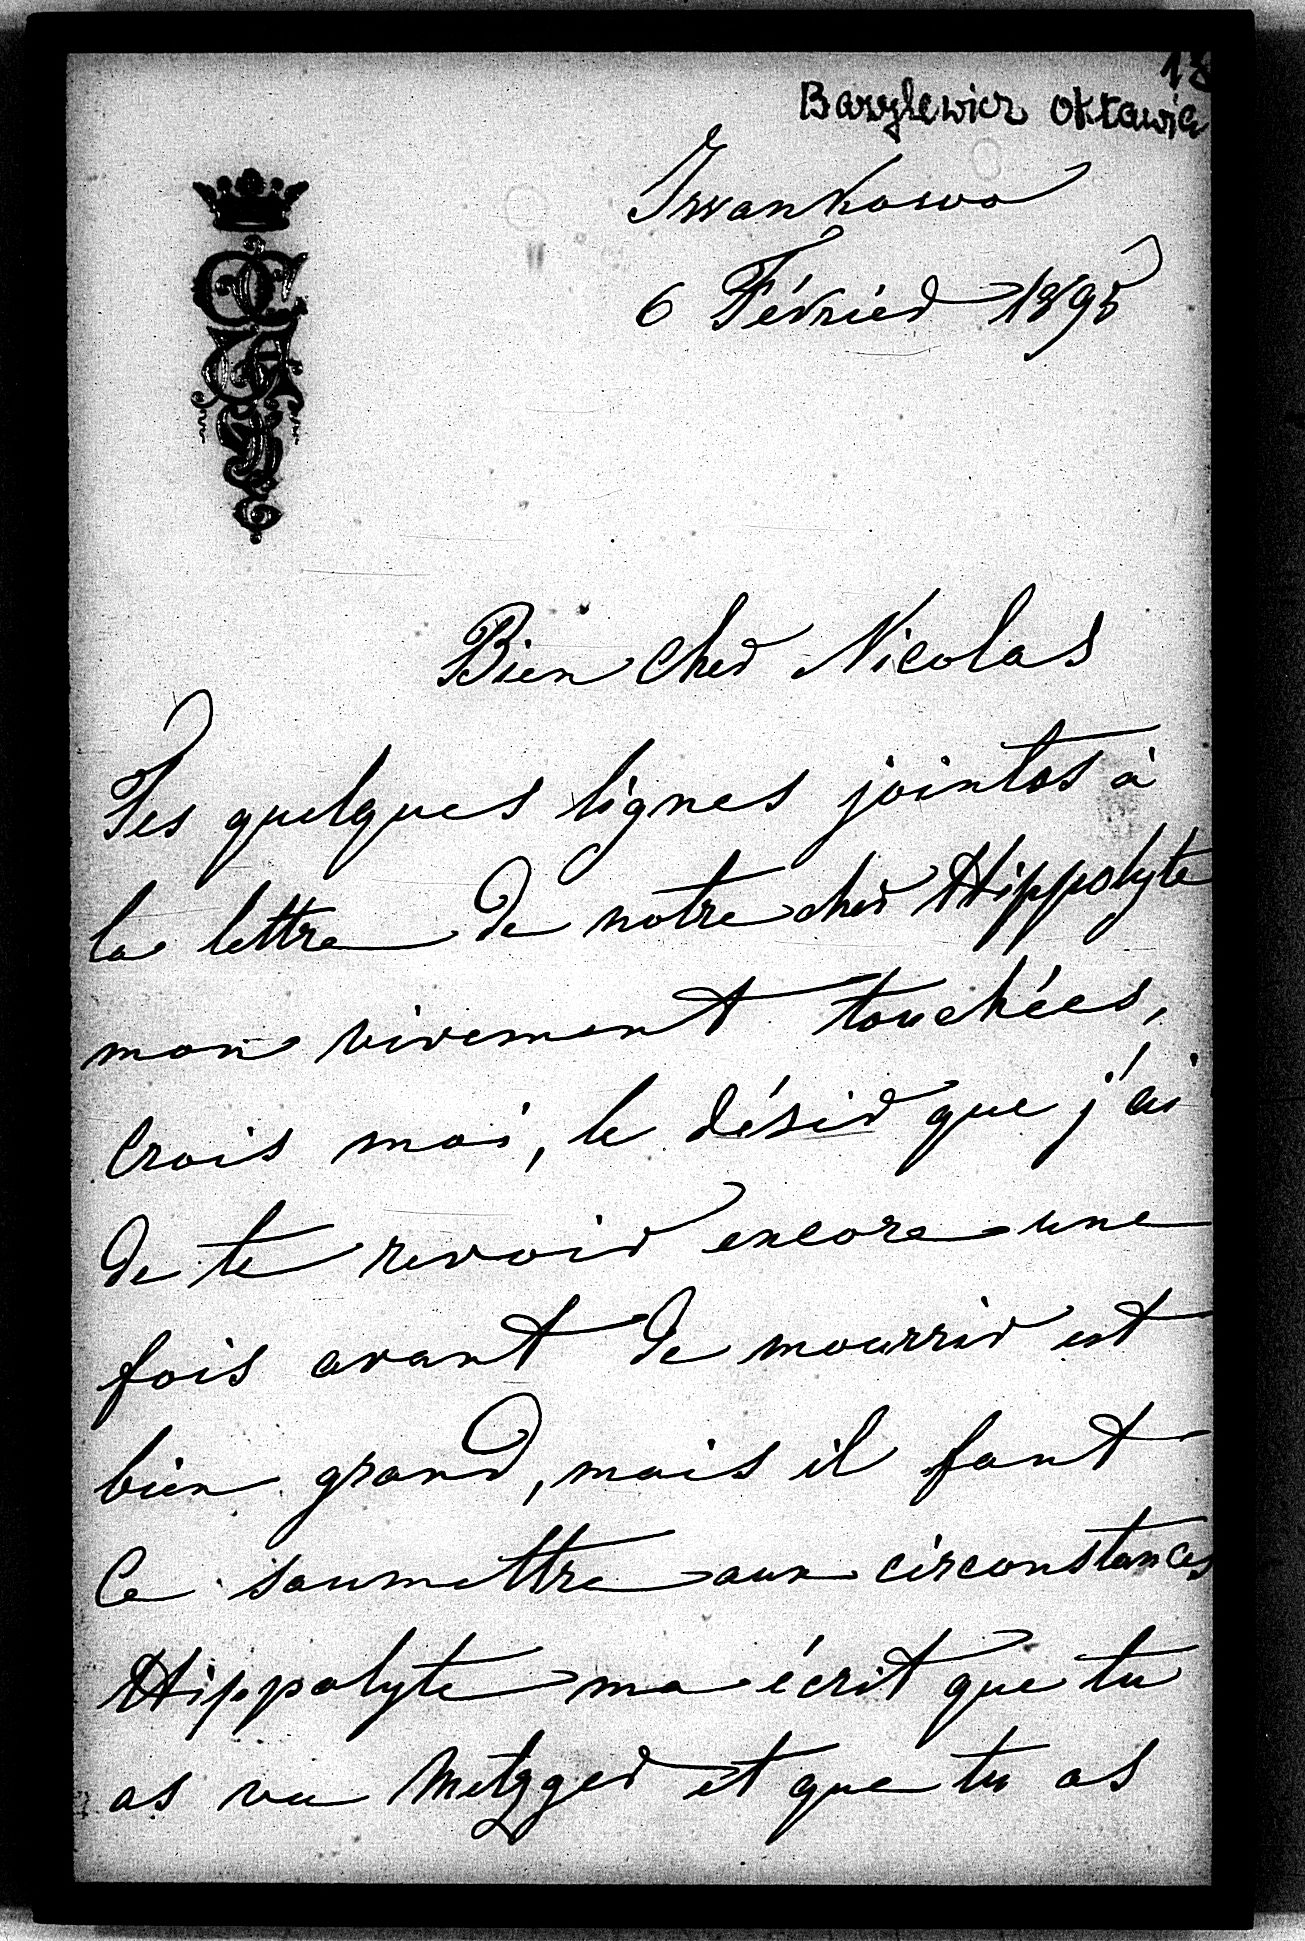 18
Bazylewicz Oktawia
Iwankowo
6 Février 1895
Bien cher Nicolas
Tes quelques lignes jointes à
la lettre de notre cher Hippolyte
mon vivement touchées,
crois moi, le désir que j'ai
de te revoir encore une
fois avant de mourrir est
bien grand, mais il faut
ce soumettre aux circonstances
Hippolyte ma écrit que tu
as vu Metzger et que tu as